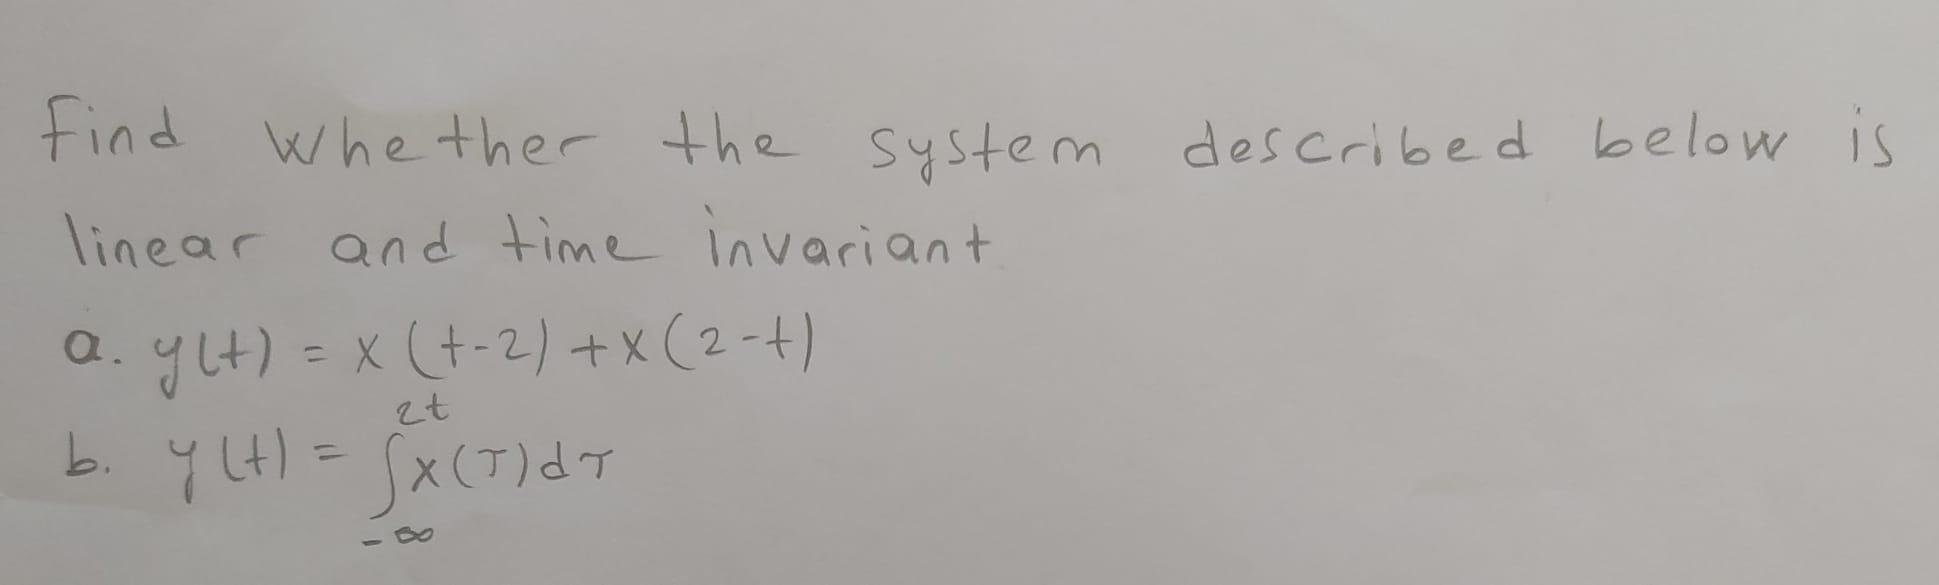 Find whether the system described below is
linear and time invariant
a. y(t) = x(t-2) + x(2-t)
b. y(t) = ∫_{-∞}^{2t} x(τ)dτ